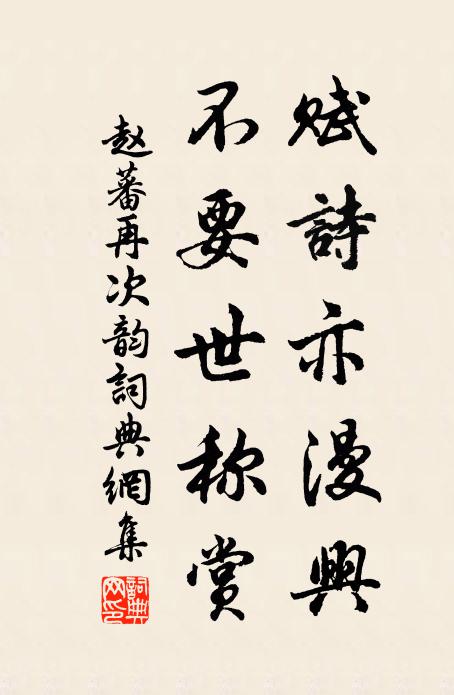 赋詩亦漫興
不要世称赏
赵蕃再次韵詞典網集
詞典網印